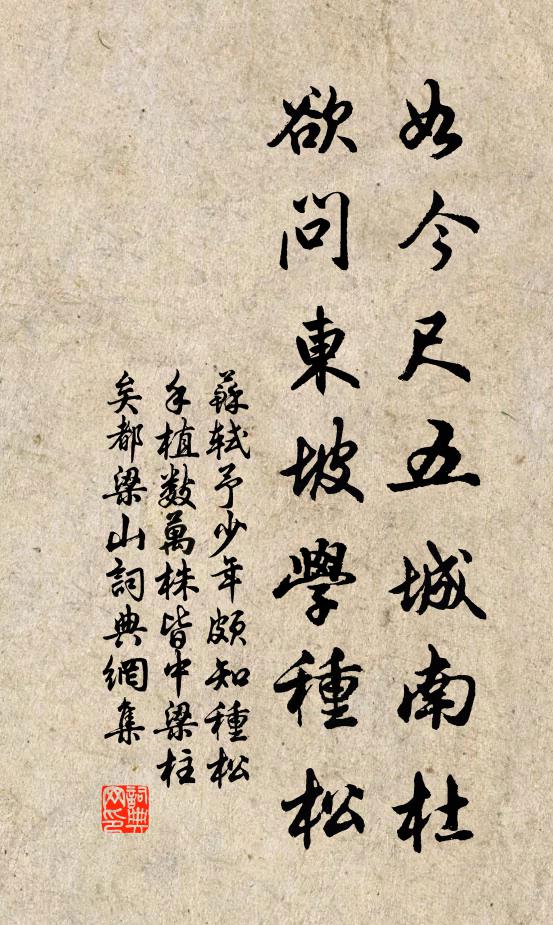 如今尺五城南杜
欲問東坡學種松
蘇軾予少年頗知種松
手植數萬株皆中梁柱
矣都梁山詞典網集
詞典網印